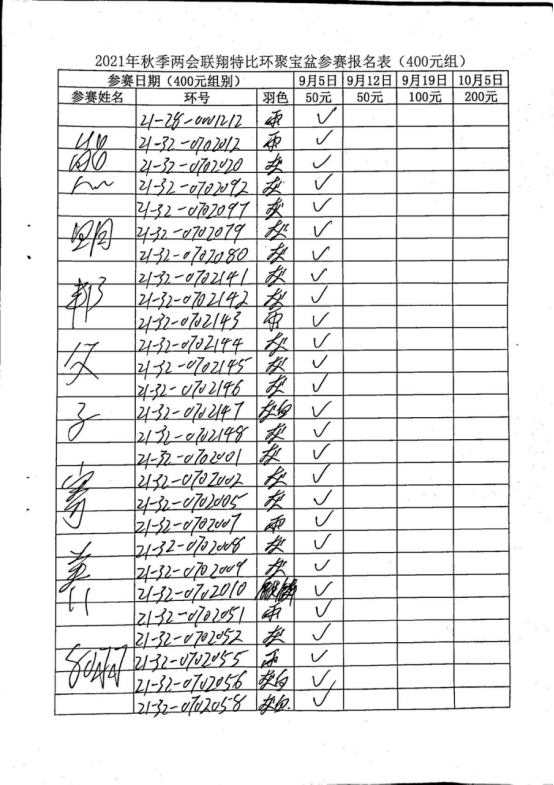 2021年秋季两会联翔特比环聚宝盆参赛报名表（400元组）
参赛日期（400元组别） 9月5日 9月12日 9月19日 10月5日
参赛姓名 环号 羽色 50元 50元 100元 200元
21-28-0001212 雨 ✓
21-32-0702012 雨 ✓
21-32-0702020 灰 ✓
21-32-0702092 灰 ✓
21-32-0702097 灰 ✓
21-32-0702079 灰 ✓
21-32-0702080 灰 ✓
21-32-0702141 灰 ✓
21-32-0702142 灰 ✓
21-32-0702143 雨 ✓
21-32-0702144 灰 ✓
21-32-0702145 灰 ✓
21-32-0702146 灰 ✓
21-32-0702147 灰白 ✓
21-32-0702148 灰 ✓
21-32-0702001 灰 ✓
21-32-0702002 灰 ✓
21-32-0702005 灰 ✓
21-32-0702007 雨 ✓
21-32-0702008 灰 ✓
21-32-0702009 灰 ✓
21-32-0702010 ✓
21-32-0702051 雨 ✓
21-32-0702052 灰 ✓
21-32-0702055 雨 ✓
21-32-0702056 灰白 ✓
21-32-0702058 灰白 ✓